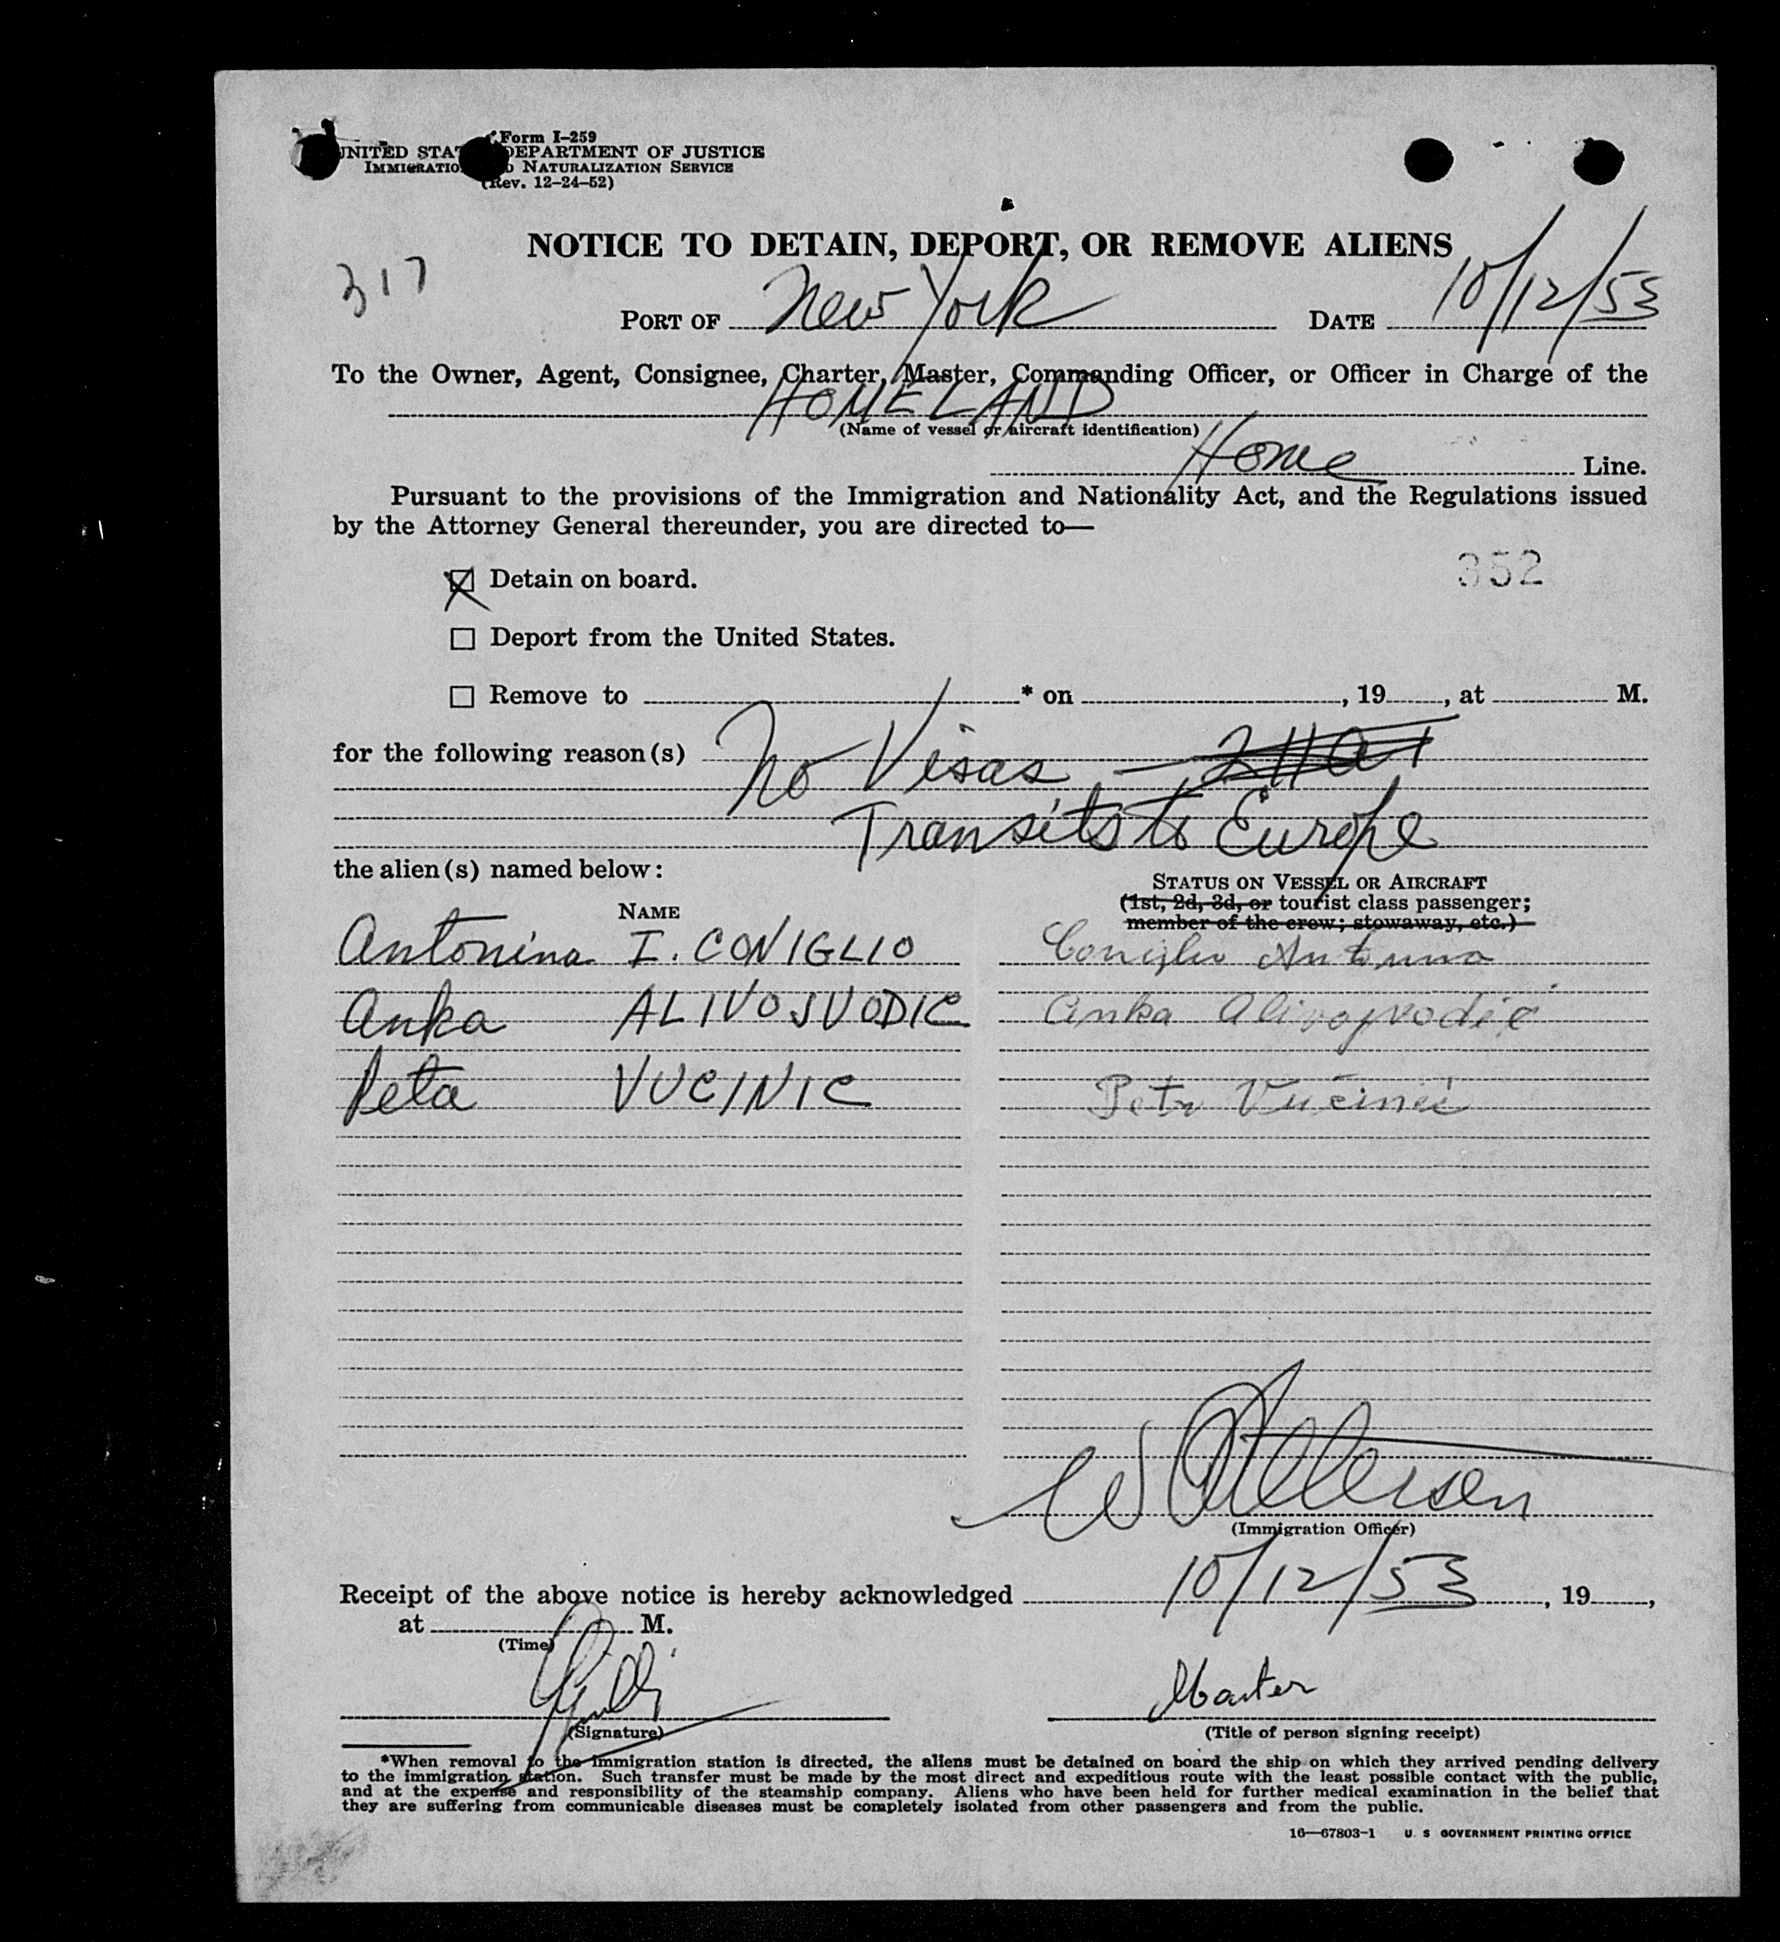 Form I-259
UNITED STA DEPARTMENT OF JUSTICE
IMMIGRATIO D NATURALIZATION SERVICE
(Rev. 12-24-52)
NOTICE TO DETAIN, DEPORT, OR REMOVE ALIENS
317
PORT OF New York DATE 10/12/53
To the Owner, Agent, Consignee, Charter, Master, Commanding Officer, or Officer in Charge of the
HOMELAND
(Name of vessel or aircraft identification)
Home Line.
Pursuant to the provisions of the Immigration and Nationality Act, and the Regulations issued
by the Attorney General thereunder, you are directed to—
352
Detain on board.
Deport from the United States.
Remove to * on , 19 , at M.
for the following reason(s) No Visas —
Transits to Europe
the alien(s) named below:
STATUS ON VESSEL OR AIRCRAFT
(1st, 2d, 3d, or tourist class passenger;
member of the crew; stowaway, etc.)
NAME
Antonina I. CONIGLIO Coniglio Antonina
Anka ALIVOJVODIC Anka Alivojvodić
Peta VUCINIC Petr Vučinić
(Immigration Officer)
Receipt of the above notice is hereby acknowledged 10/12/53 , 19 ,
at M.
(Time)
Master
(Signature) (Title of person signing receipt)
*When removal to the immigration station is directed, the aliens must be detained on board the ship on which they arrived pending delivery
to the immigration station. Such transfer must be made by the most direct and expeditious route with the least possible contact with the public,
and at the expense and responsibility of the steamship company. Aliens who have been held for further medical examination in the belief that
they are suffering from communicable diseases must be completely isolated from other passengers and from the public.
16—67803-1 U. S GOVERNMENT PRINTING OFFICE